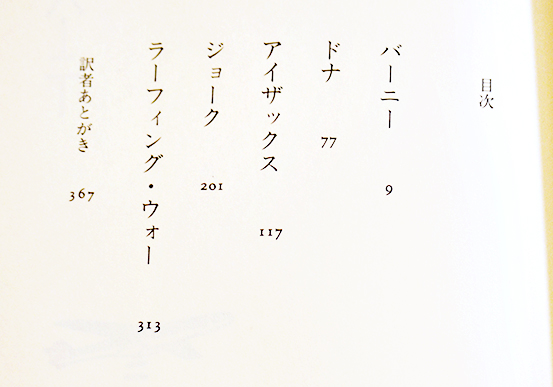 目次
バーニー 9
ドナ 77
アイザックス 117
ジョーク 201
ラーフィング・ウォー 313
訳者あとがき 367